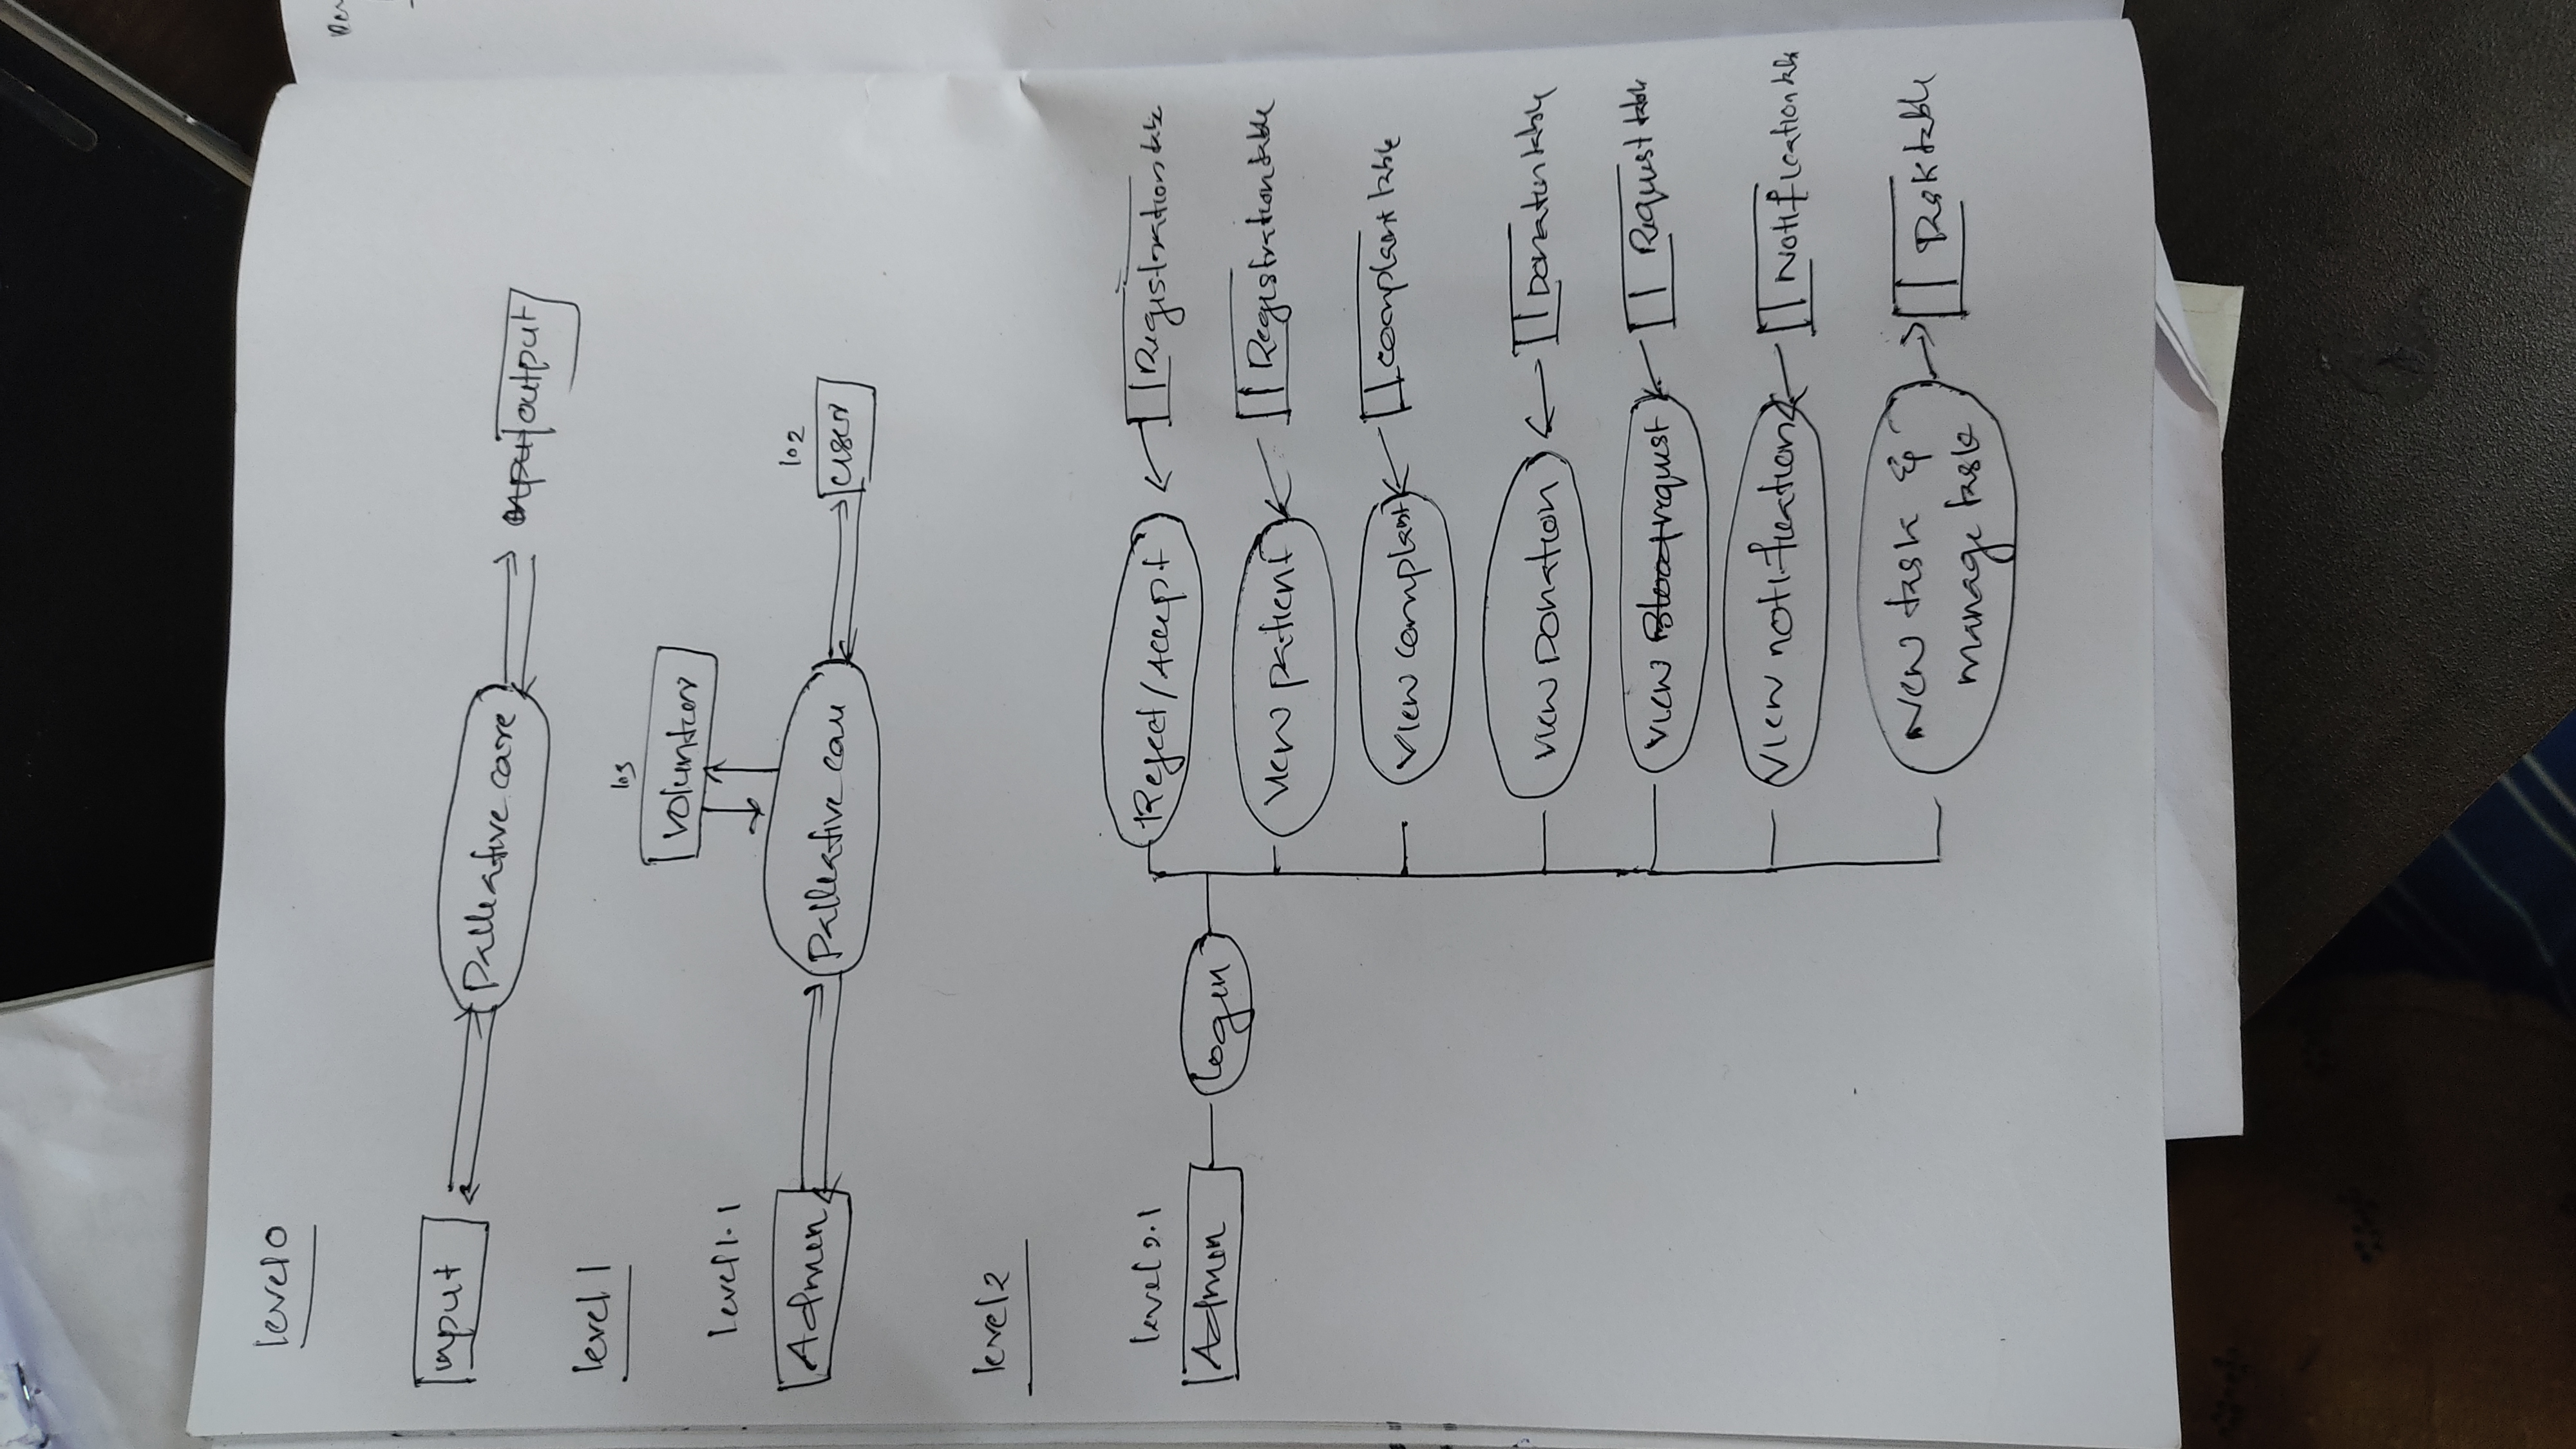 level 0
input
Palleative care
output
level 1
level 1.1
Admin
Palleative care
Volunteer
103
user
102
level 2
level 2.1
Admin
Login
Reject / Accept
Registration table
View patient
Registration table
View complaint
complaint table
View Donation
Donation table
View request
Request table
View notification
Notification table
View task &
manage task
Task table